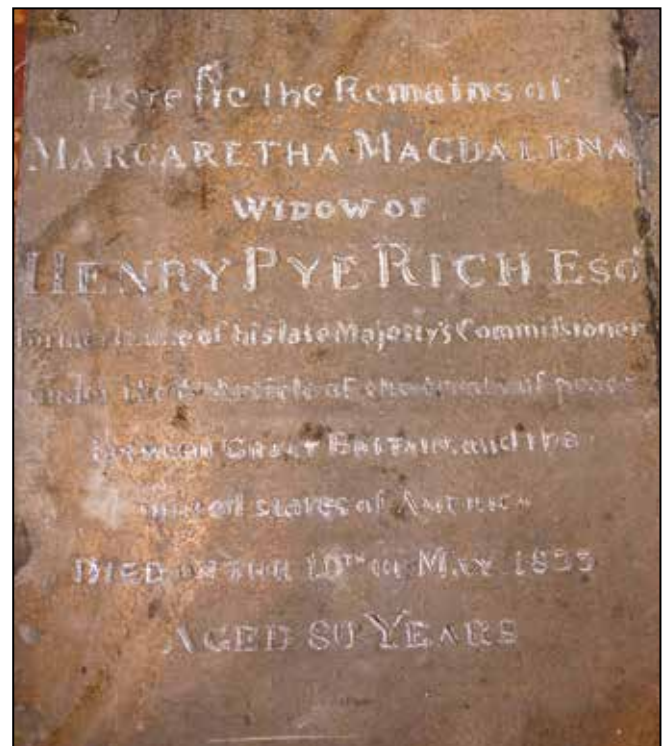 Here lie the Remains of
MARGARETHA MAGDALENA
WIDOW OF
HENRY PYE RICH ESQ
formerly one of his late Majesty's Commissioner
under the article of the treaty of peace
between GREAT BRITAIN and the
united states of AMERICA
DIED on THE 10TH OF MAY
AGED 80 YEARS